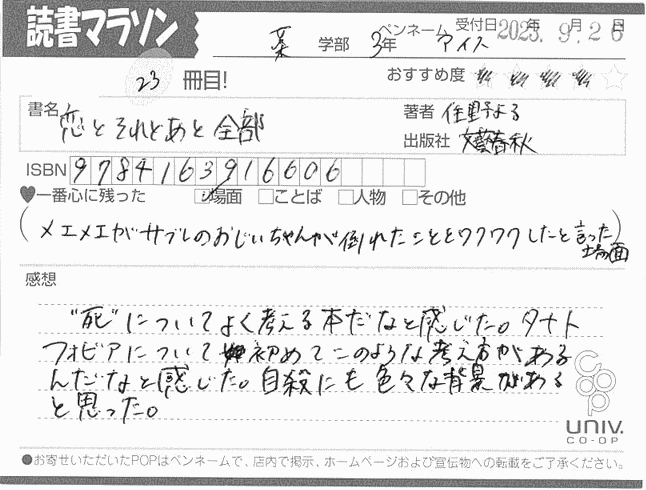 読書マラソン
薬 学部 3年 ペンネーム アイス 受付日 2025年 9月26日
23 冊目!
おすすめ度
書名 恋とそれとあと全部
著者 住野よる
出版社 文藝春秋
ISBN 9784163916606
♥一番心に残った ☑場面 □ことば □人物 □その他
(メエメエがサブレのおじいちゃんが倒れたことをワクワクしたと言った場面)
感想
"死"についてよく考える本だなと感じた。タナト
フォビアについて初めてこのような考え方がある
んだなと感じた。自殺にも色々な背景がある
と思った。
coop
UNIV.
CO-OP
●お寄せいただいたPOPはペンネームで、店内で掲示、ホームページおよび宣伝物への転載をご了承ください。